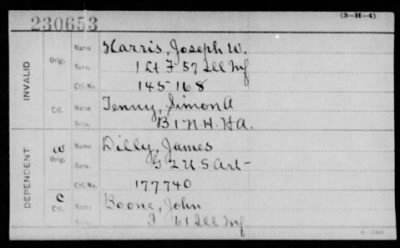 230653
(3-H-4)
INVALID
Orig.
Name Harris, Joseph W.
Serv. 1 Lt F 57 Ill Inf
Ctf. No. 145168
Cd.
Name Tenny, Simon A
Serv. B 1 N.H. H A.
DEPENDENT
W
Orig.
Name Dilly, James
Serv. G 2 U S Art-
Ctf. No. 177740
C
Cd.
Name Boone, John
Serv. 61 Ill Inf